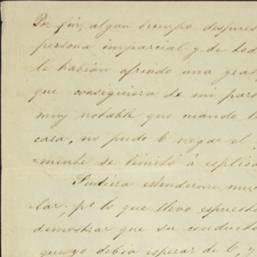 Por fin, algun tiempo despues
persona imparcial y de tod
le habian ofrecido una gra
que consiguiera de mi par
muy notable que cuando l
casa, no pudo b negar el
mente se limitó á esplica
Pudiera estenderme muc
lar, pr lo que llevo espuest
demostrar que su conduct
que yo debia esperar de b, y